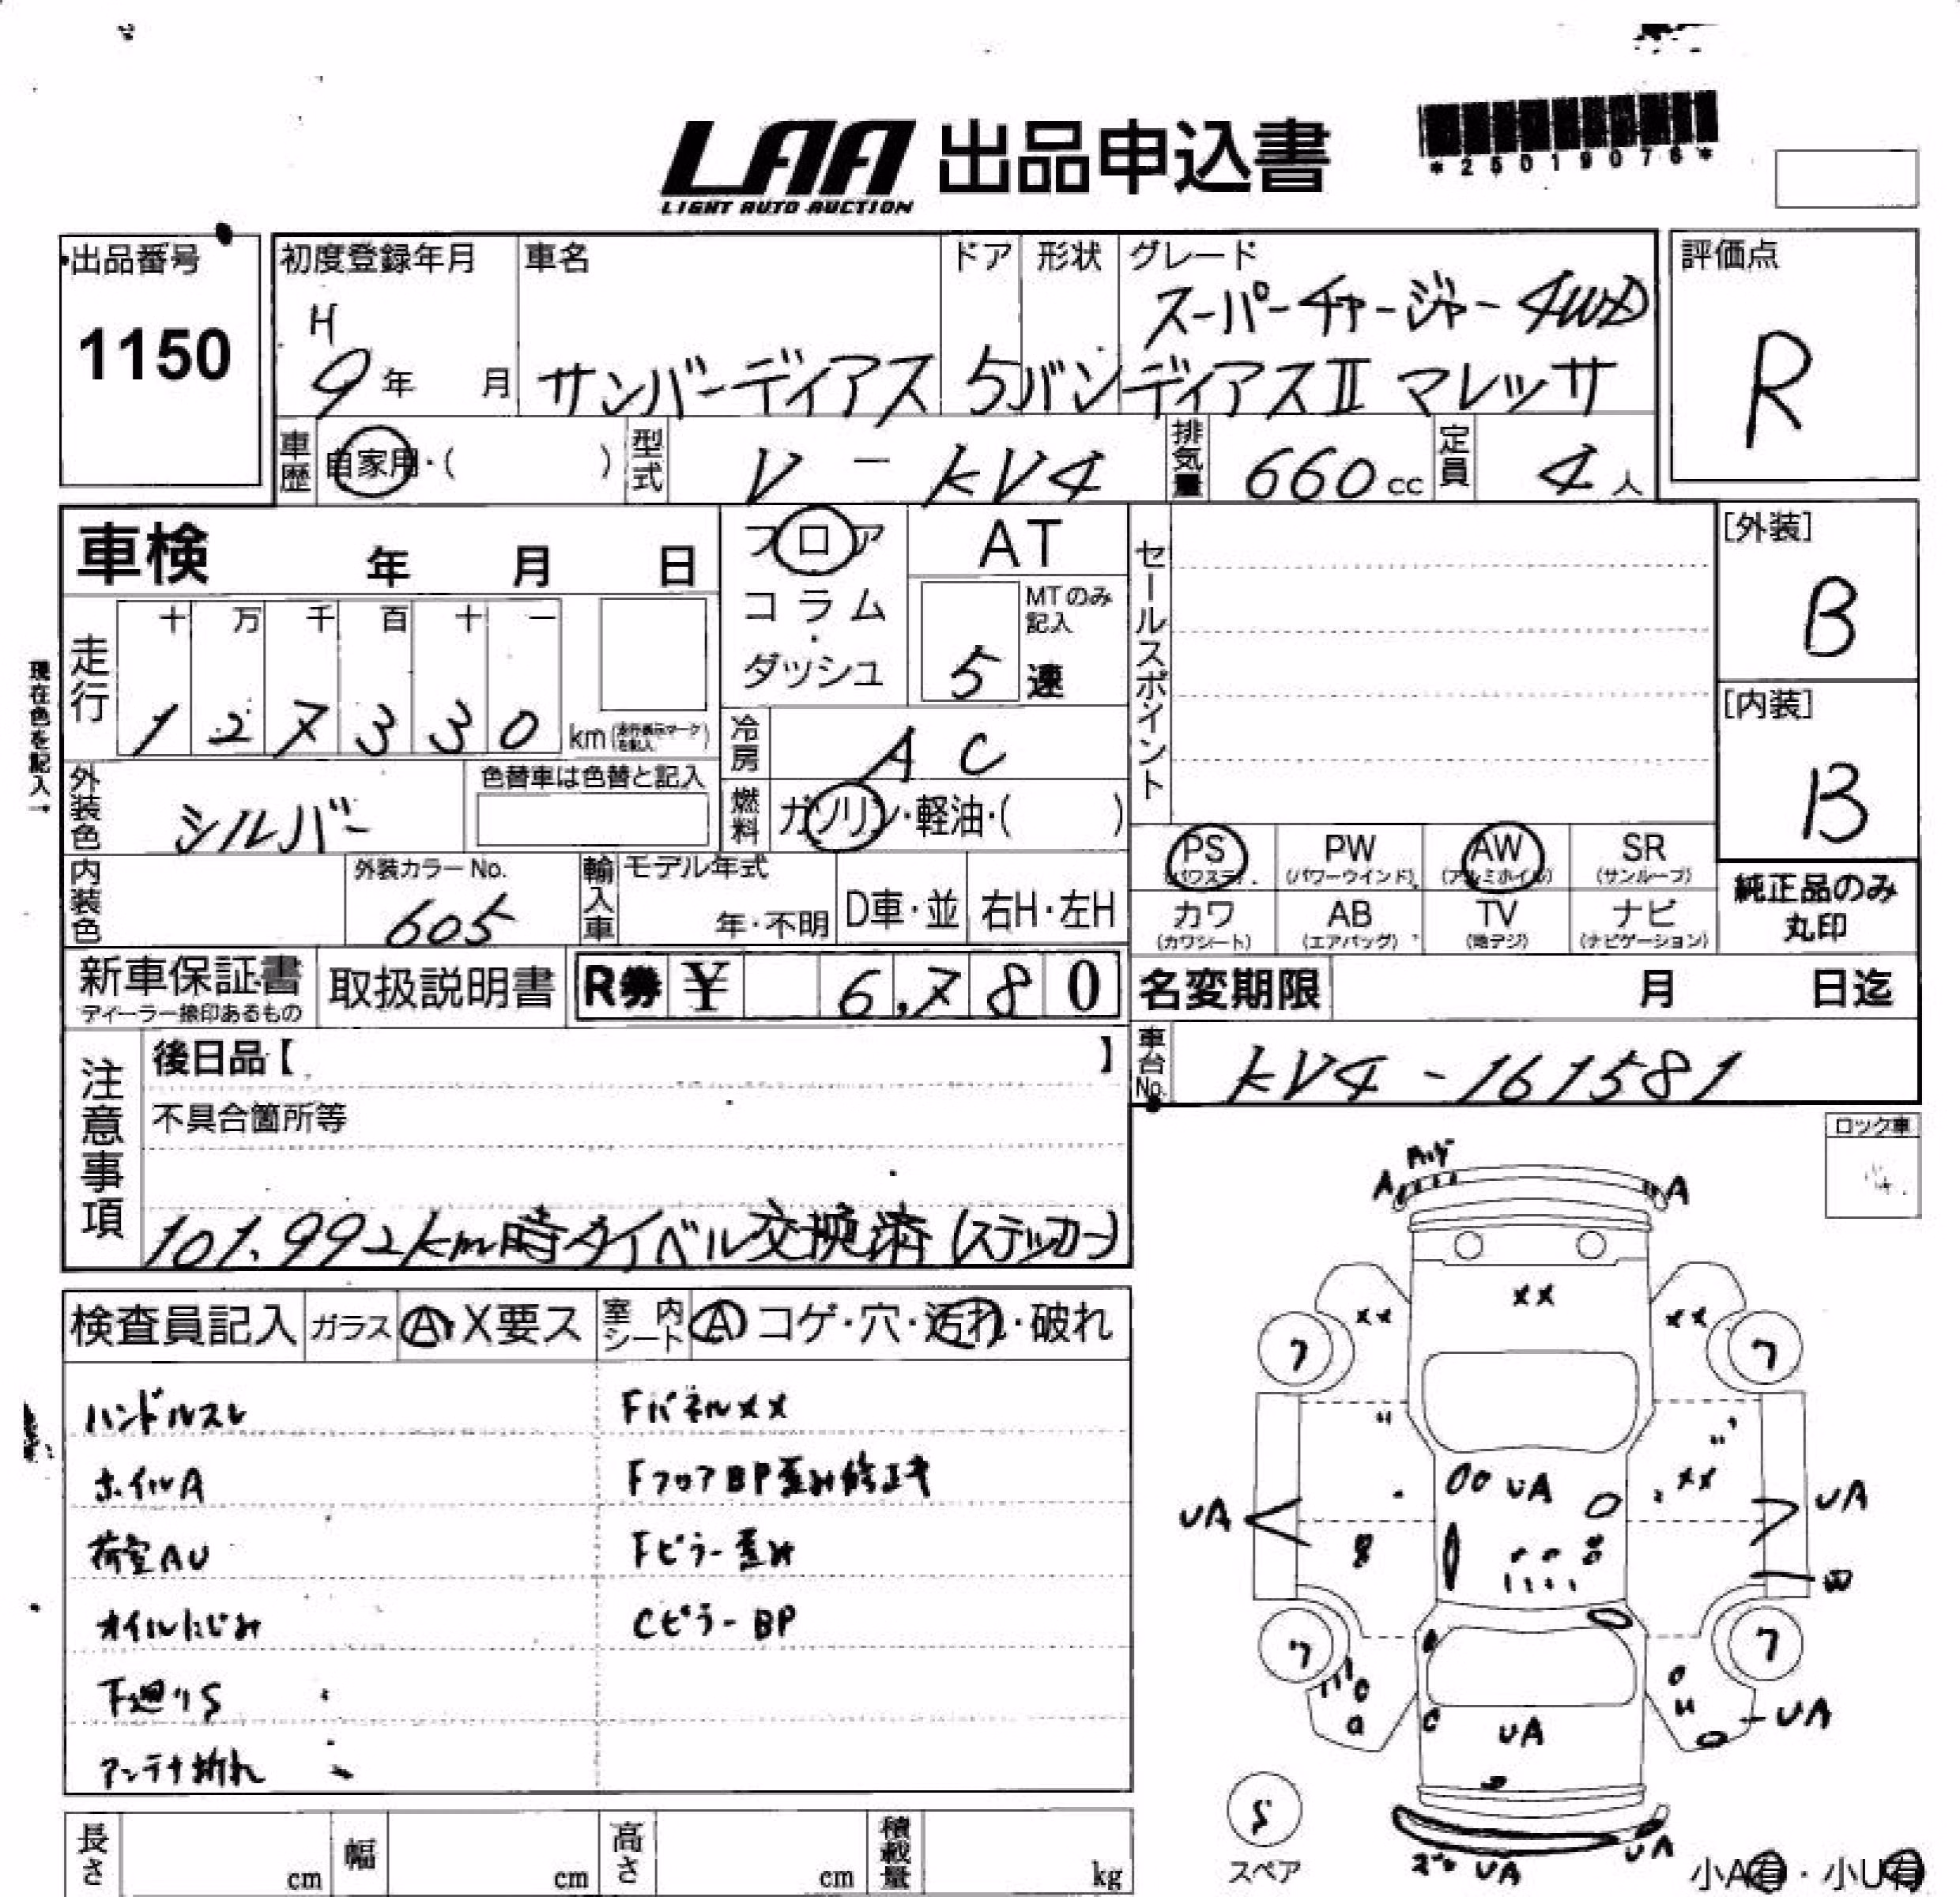 LAA 出品申込書
LIGHT AUTO AUCTION
*25019076*
出品番号
1150
初度登録年月 車名 ドア 形状 グレード
H
スーパーチャージャー 4WD
9年 月 サンバーディアス 5 バン ディアスⅡ マレッサ
評価点
R
車歴 自家用・( ) 型式 V - KV4 排気量 660cc 定員 4人
車検 年 月 日
フロア
コラム
・
ダッシュ
AT
MTのみ記入
5速
セールスポイント
[外装]
B
[内装]
B
現在色を記入→
走行
十 万 千 百 十 一
1 2 7 3 3 0 km(走行表示マークを記入)
冷房 AC
外装色 シルバー
色替車は色替と記入
燃料 ガソリン・軽油・( )
内装色
外装カラーNo.
605
輸入車 モデル年式
年・不明 D車・並 右H・左H
PS PW AW SR
(パワステ) (パワーウインド) (アルミホイル) (サンルーフ)
カワ AB TV ナビ
(カワシート) (エアバッグ) (地デジ) (ナビゲーション)
純正品のみ
丸印
新車保証書
ディーラー捺印あるもの
取扱説明書
R券 ¥ 6,780
名変期限 月 日迄
車台No. KV4-161581
注意事項
後日品【 】
不具合箇所等
101.992km時タイベル交換済(ステッカー)
ロック車
検査員記入 ガラス A・X要ス 室内シート A コゲ・穴・汚れ・破れ
ハンドルスレ FパネルXX
ホイルA FフロアBP歪み修正キ
荷室AU Fピラー歪み
オイルにじみ CピラーBP
下廻りS
アンテナ折れ
A A
XX
XX XX
フ フ
XX
UA
UA UA
フ フ
UA
UA
S
スペア
UA UA
小A有・小U有
長さ cm 幅 cm 高さ cm 積載量 kg